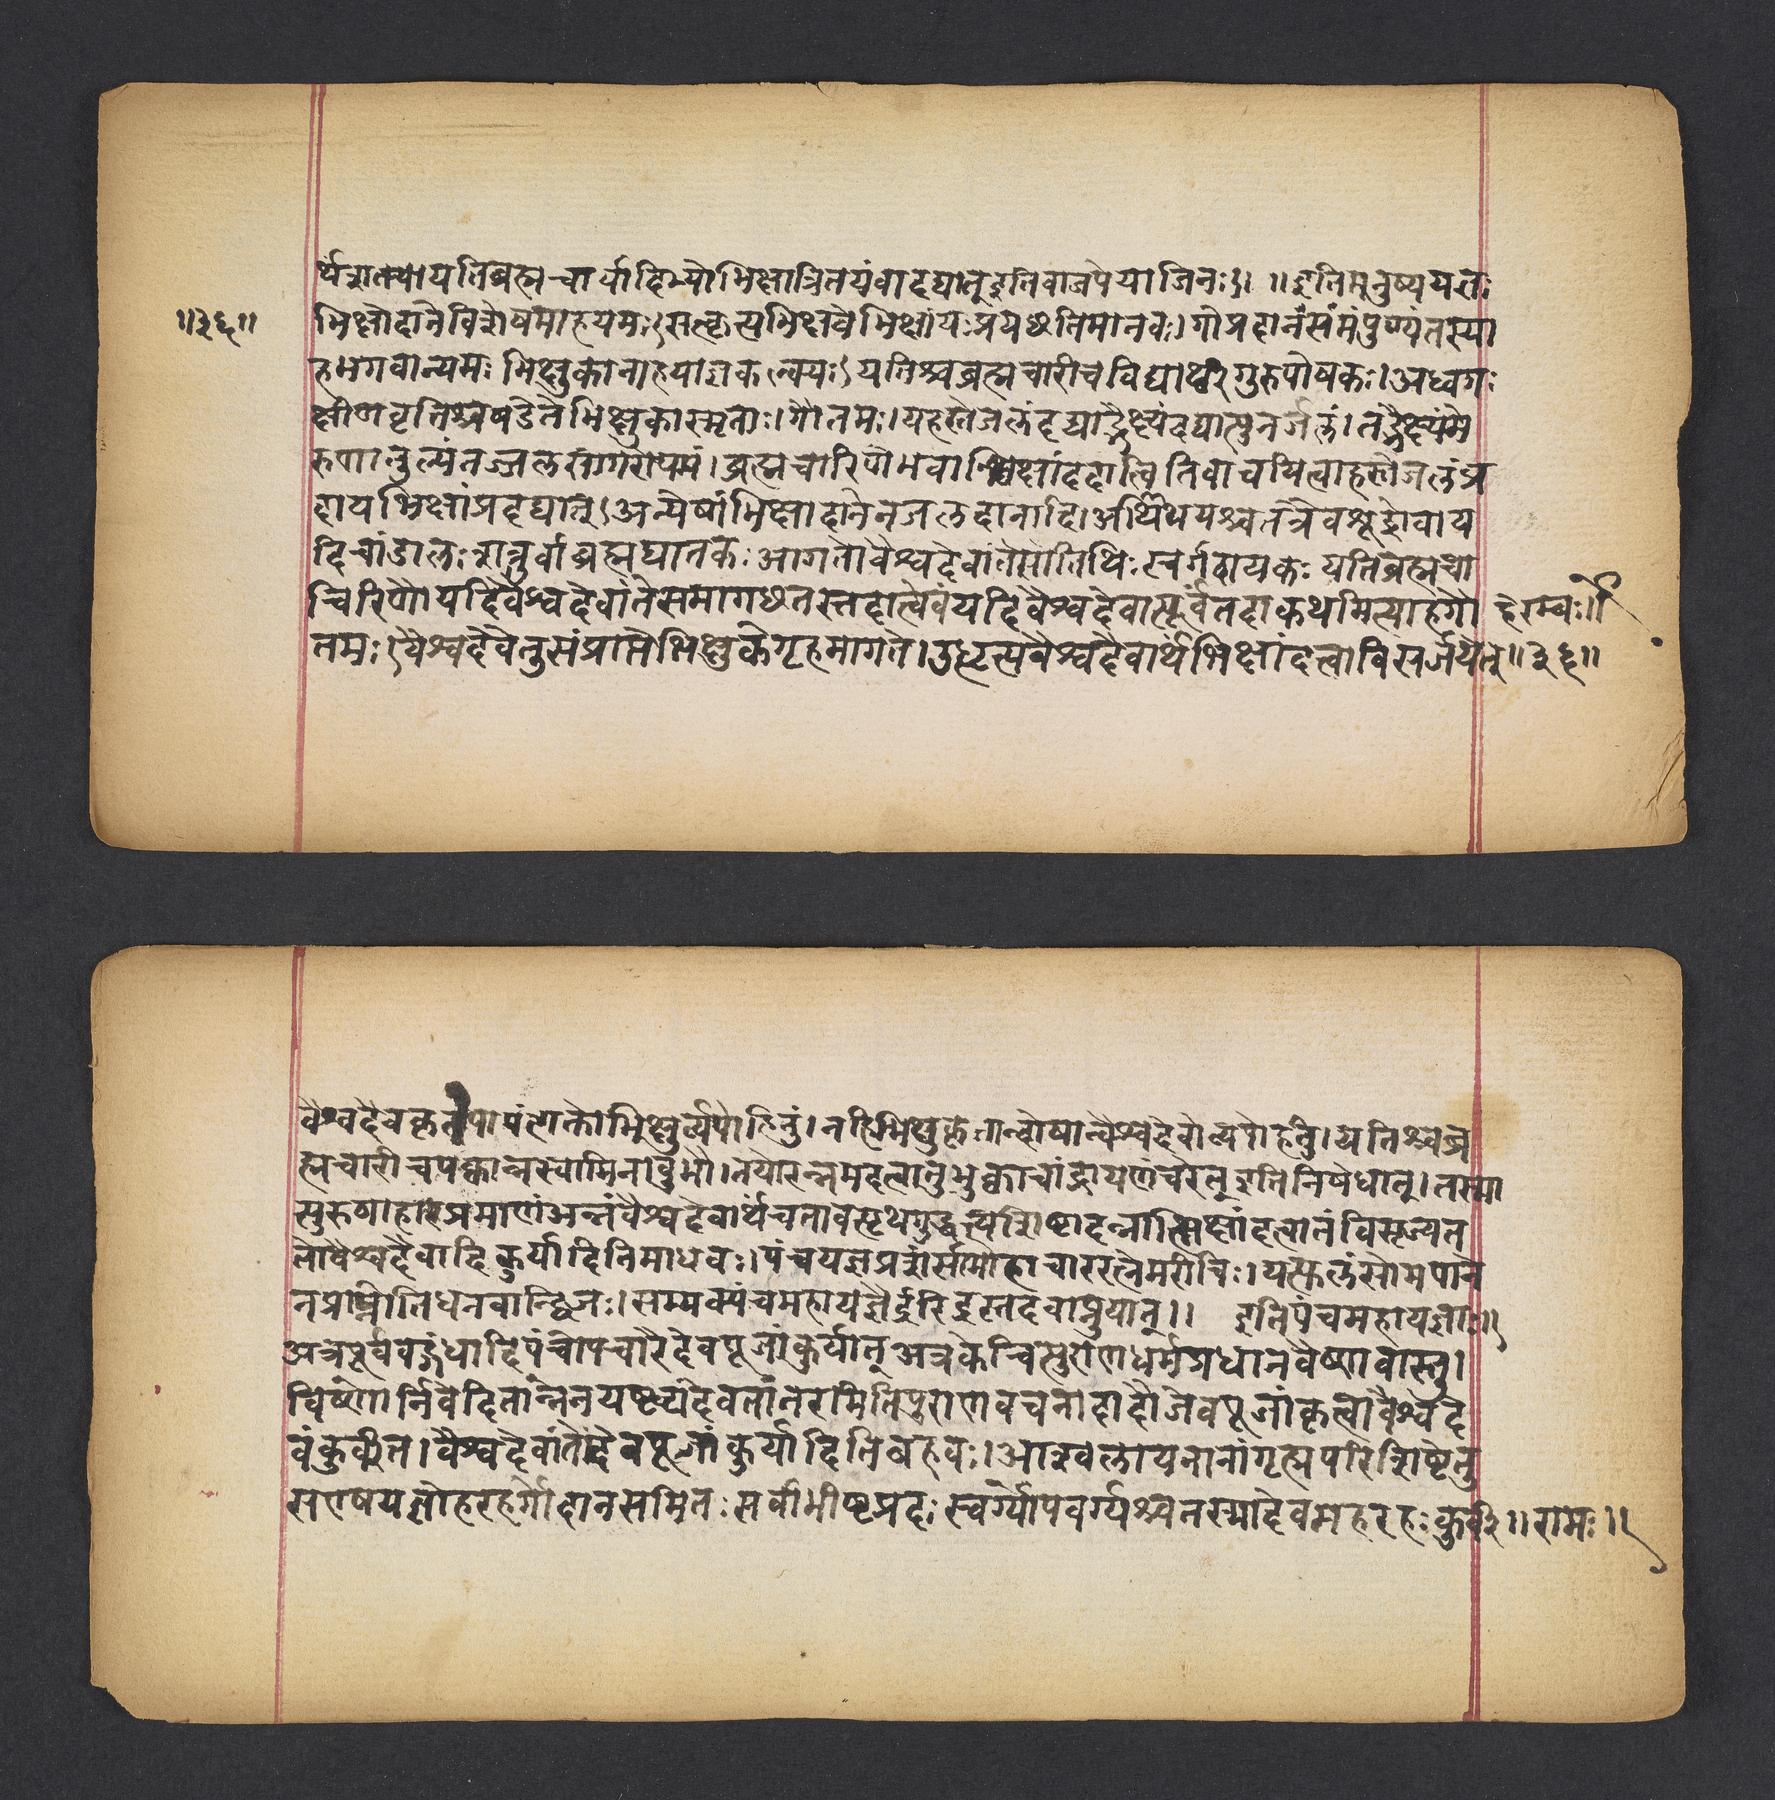 र्थंशक्त्या यतिब्रह्मचार्यादिभ्यो भिक्षात्रितयं वा दद्यात् इति वाजपेयाजिनः।। ॥इतिमनुष्ययज्ञः
॥३६॥
भिक्षोदाने विशेषमाह यमः। सत्कृत्य भिक्षवे भिक्षां यः प्रयछति मानवः। गोप्रदानं समं पुण्यं तस्या
ह भगवान्यमः भिक्षुकानाह याज्ञवल्क्यः। यतिश्च ब्रह्मचारी च विद्यार्थी गुरुपोषकः। अध्वगः
क्षीणवृत्तिश्च षडेते भिक्षुका स्मृताः। गौतमः। यद्धस्ते जलं दद्याद्भैक्ष्यं दद्यात्पुनर्जलं। तद्भैक्ष्यं मे
रुणा तुल्यं तज्जलं सागरोपमं। ब्रह्मचारिणे भवान्भिक्षां ददात्विति वाचयित्वा हस्ते जलं प्र
दाय भिक्षां प्रदद्यात्। अन्येषां भिक्षादाने न जलदानादि। अथातिथयश्च तत्रैव श्रूद्रोवाय
दि चांडालः शत्रुर्वा ब्रह्मघातकः आगतो वैश्वदेवांते सोतिथिः स्वर्गदायकः यतिब्रह्मचा
रिणौ यदि वैश्वदेवांते समागछतस्तदात्वेवं यदि वैश्वदेवात्पूर्वं तदा कथमित्याह गौ हेरम्बः॥
तमः। वैश्वदेवे तु संप्राप्ते भिक्षुके गृहमागते। उद्धृत्य वैश्वदेवार्थं भिक्षां दत्वा विसर्जयेत्॥३६॥
वैश्वदेवकृतं पापं शक्तो भिक्षुर्व्यपोहितुं। नहि भिक्षुकृतान्दोषान्वैश्वदेवो व्यपोहतु। यतिश्च ब्र
ह्मचारी च पक्वान्नस्वामिनावुभौ। तयोरन्नमदत्वा तु भुक्त्वा चांद्रायणं चरेत् इति निषेधात्। तस्मा
त्पुरुषाहारप्रमाणं अन्नं वैश्वदेवार्थं च तावत्पृथगुद्धृत्य शिष्टादन्नात् भिक्षां दत्वा तं विसृज्य त
तो वैश्वदेवादि कुर्यादिति माधवः। पंचयज्ञप्रशंसामाहाचाररत्ने मरीचिः। यत्फलं सोमपाने
न प्राप्नोति धनवान्द्विजः। सम्यक्पंचमहायज्ञैर्दरिद्रस्तदवाप्नुयात्।। इतिपंचमहायज्ञाः॥
अत्र पूर्ववद्गंधादिपंचोपचारैर्देवपूजां कुर्यात् अत्र केचित्पुराणधर्मप्रधान वैष्णवास्तु।
विष्णोर्निवेदितान्नेन यष्टव्यं देवतांतरमिति पुराणवचनादादौ देवपूजां कृत्वा वैश्वदे
वं कुर्वीत। वैश्वदेवांते देवपूजां कुर्यादिति बह्वः। आश्वलायनानां गृह्मपरिशिष्टे तु
स एष यज्ञोहरहर्गोदानसमितः सर्वाभीष्टप्रदः स्वर्ग्योपवर्ग्यश्च तस्मादेवमहरहः कुर्वी॥ रामः ॥